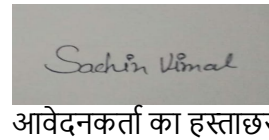 Sachin Vimal
आवेदनकर्ता का हस्ताछर